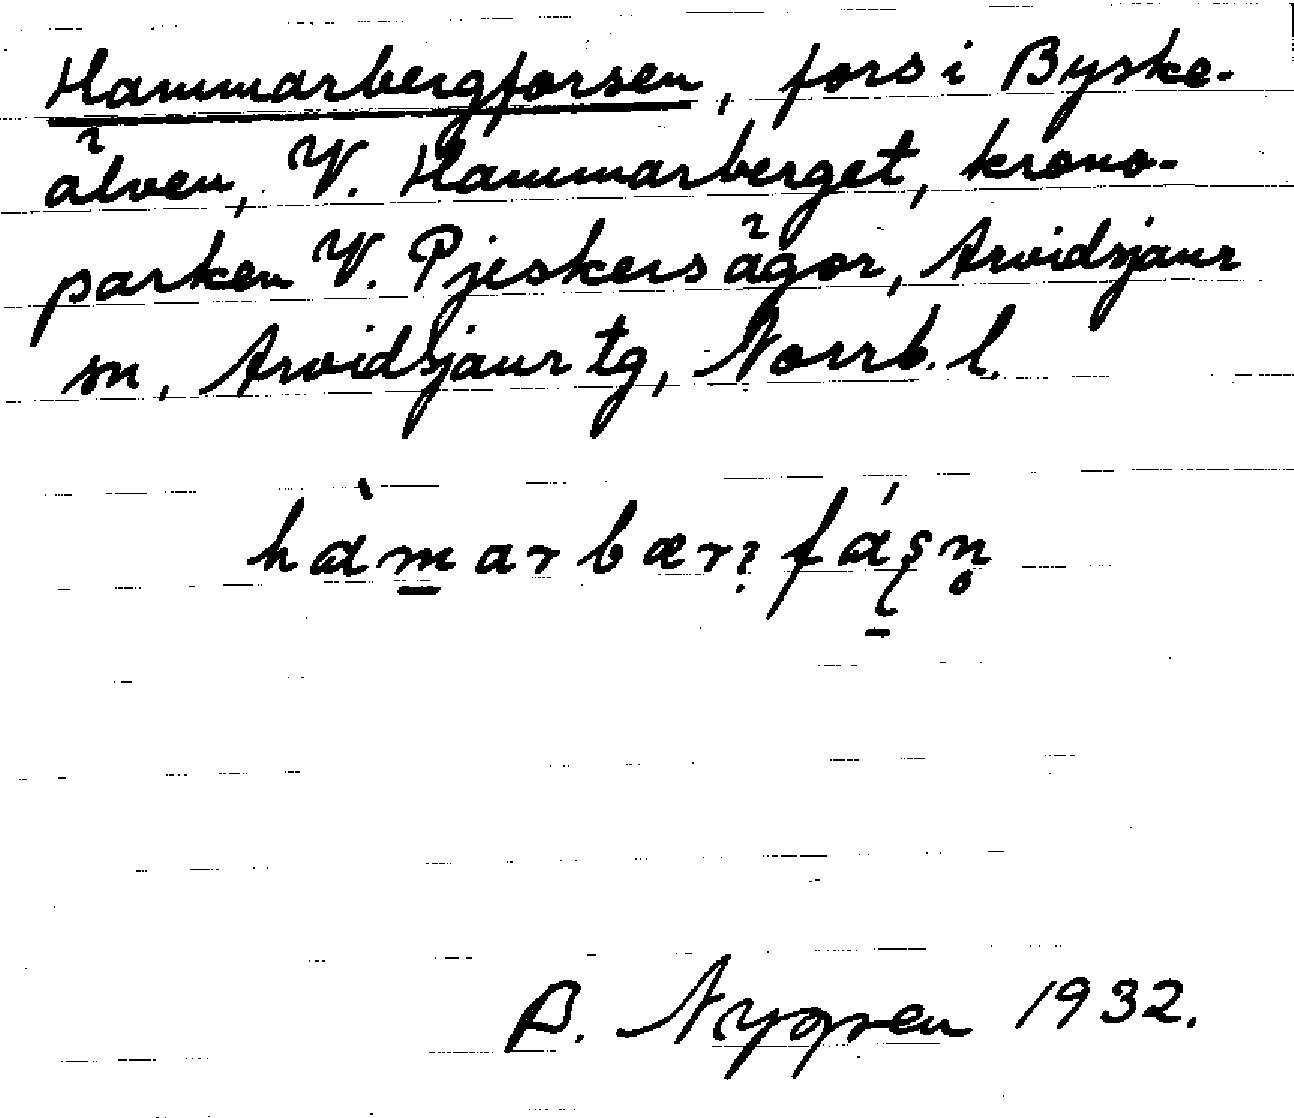 Hammarbergforsen, fors i Byske-
älven, V. Hammarberget, krono-
parken V. Pjeskersägor, Arvidsjaur
sn, Arvidsjaur tg, Norrb. l.
B. Nygren 1932.